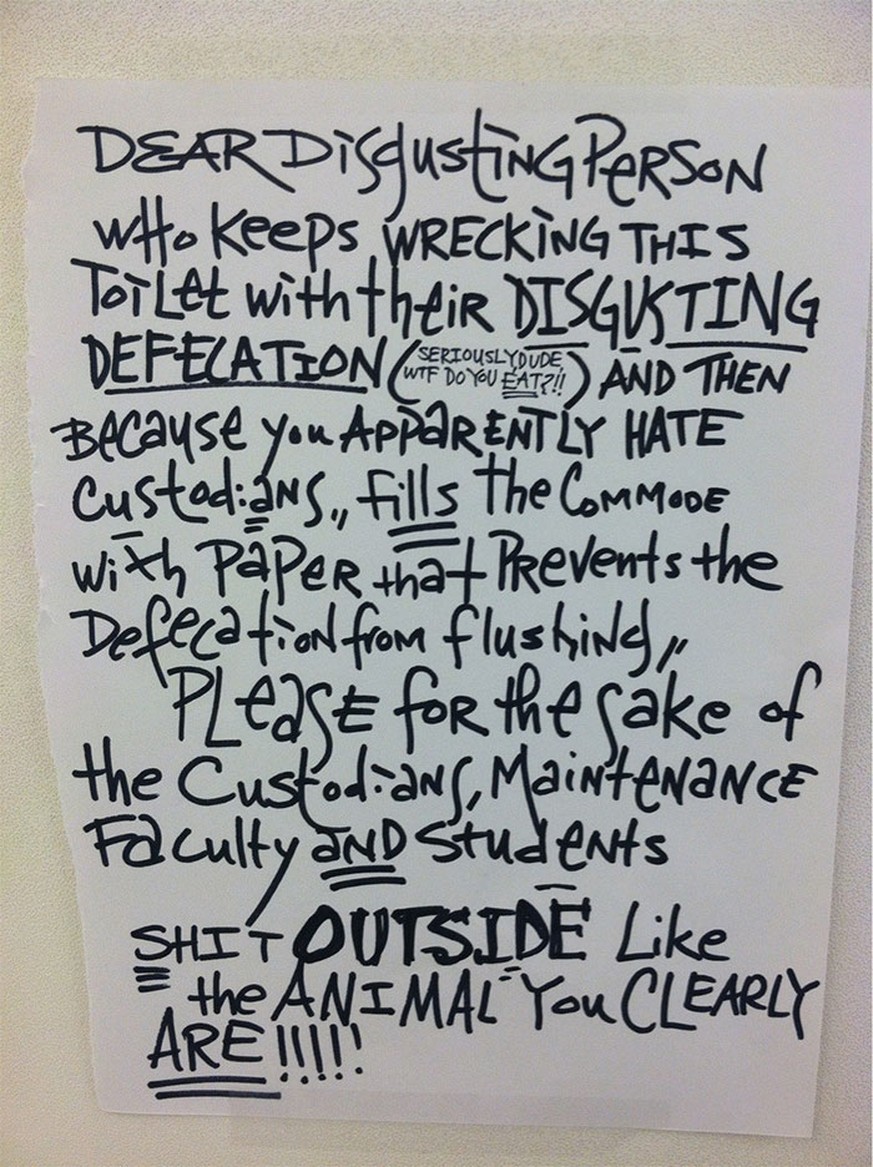 DEAR DisgustiNG PeRSON
wHo Keeps WRECKiNG THIS
ToiLet with their DISGUSTING
DEFECATION (SERIOUSLY DUDE
WTF DO YOU EAT?!!) AND THEN
Because you APPaRENTLY HATE
Custodians,, fills the COMMODE
with PaPER that PRevents the
Defecation from flushing,,
PLeaSE foR the sake of
the Custodians, MaintENaNCE
Faculty aND Students
SHIT OUTSIDE Like
the ANIMAL You CLEARLY
ARE!!!!!